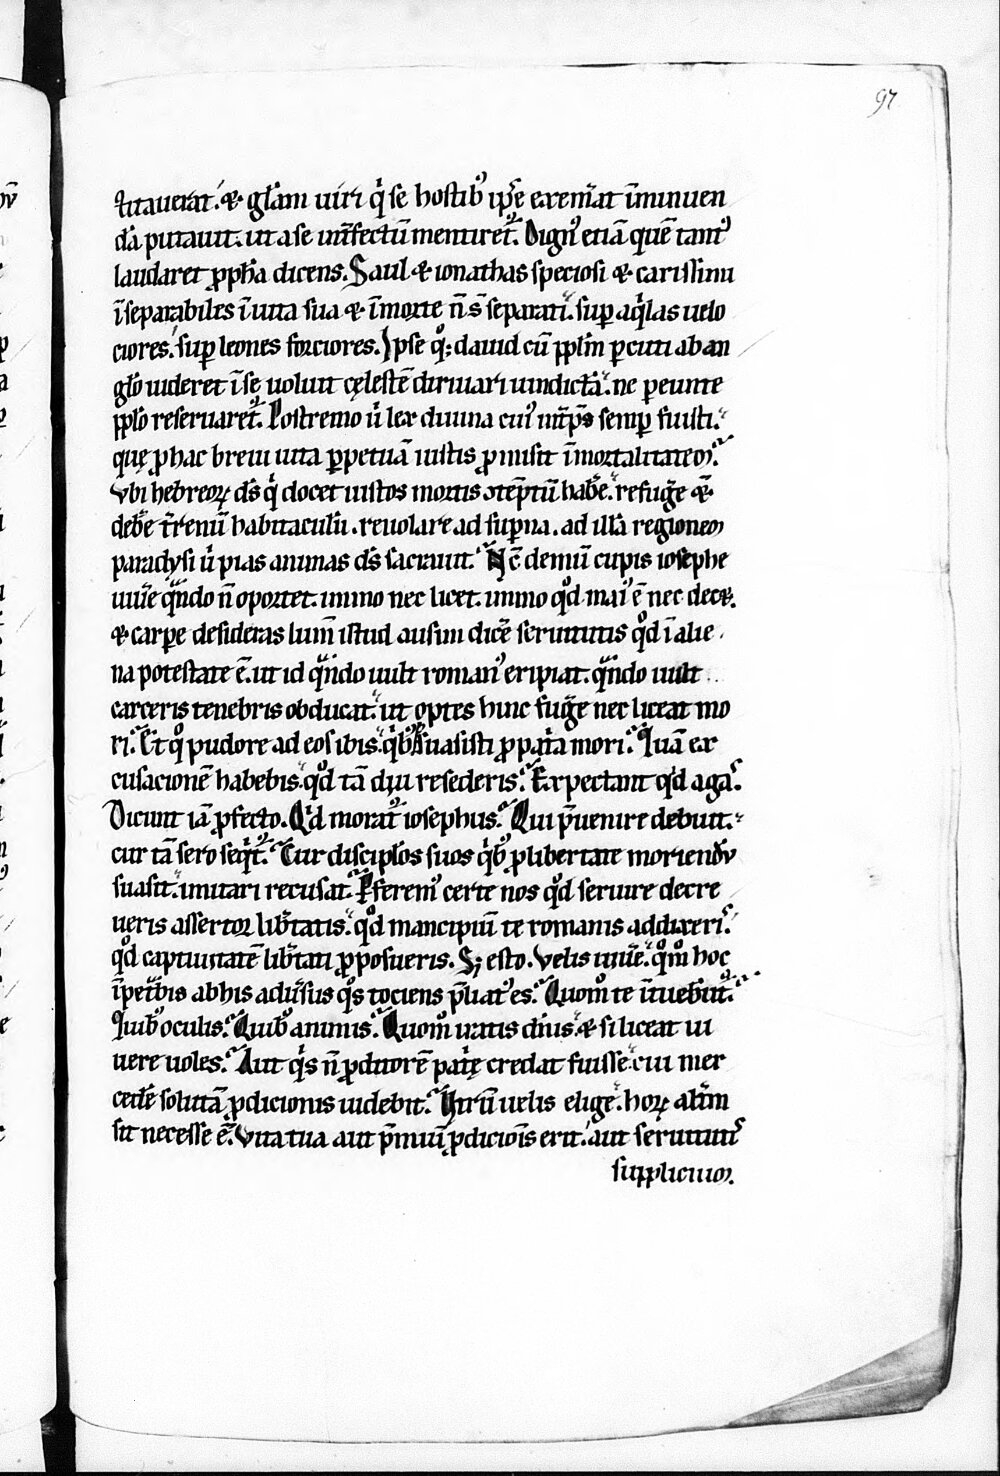 97
titauerat. & gl̄am uiri q̇ se hostibꝰ ip̄e exem̄at īminuen
dā putauit. ut a se int̄fectū mentiret᷑. Dignꝰ etiā quē tantꝰ
laudaret ꝓph̄a dicens. Saul & ionathas speciosi & carissimi
īseparabiles ī uita sua & ī morte n̄ s̄ separati. suꝑ aq̇las uelo
ciores. suꝑ leones forciores. Ipse qͦꝫ dauid cū ꝑꝑl̄m ꝑcuti ab an
glō uideret ī se uoluit cęlestē diriuari uindictā. ne ꝑeunte
ꝑꝑlo reseruaret᷑. Postremo u̇ lex diuina cuiꝰ int̄p̄s semꝑ fuisti.
quę ꝓ hac breui uita ꝑpetuā iustis ꝓmisit īmortalitatem.
Vbi hebreoꝝ ds̄ q̇ docet iustos mortis ↄtēptū hab̄e. refuḡe &̄
deb̄e t̄renū habitaculū. reuolare ad suꝑna. ad illā regionem
paradysi u̇ pias animas ds̄ sacrauit. Nc̄ demū cupis iosephe
uiūe qn̄do n̄ oportet. immo nec licet. immo qͦd maiꝰ ē nec decet.
& carpe desideras lum̄ istud ausim dic̄e seruitutis qͦd ī alie
na potestate ē. ut id qn̄do uult romanꝰ eripiat. qn̄do uult
carceris tenebris obducat. ut optes hinc fuḡe nec liceat mo
ri. Et qͦ pudore ad eos ibis. q̇bꝰ suasisti ꝓ pat̄a mori. Quā ex
cusacionē habebis. qͦd tā diu resederis. Expectant qͥd agaˢ.
Dicunt iā ꝓfecto. Qͥd morat᷑ iosephus. Qui p̄uenire debuit.
cur tā sero seqͥt᷑. Cur discipl̄os suos q̇bꝰ ꝓ libertate moriendū
suasit. imitari recusat. Pferemꝰ certe nos qͦd seruire decre
ueris assertor lib̄tatis. qͦd mancipiū te romanis addixeriˢ.
qͦd captiuitatē lib̄tati ꝓposueris. Sꝫ esto. Velis uiūe. qͦm̄ hoc
īpet̄bis ab his adūsus qͦs tociens p̄liatꝰ es. Quom̄ te ītuebūt᷑.
Quibꝰ oculis. Quibꝰ animis. Quom̄ iratis dn̄is. & si liceat ui
uere uoles. Aut qͥs n̄ ꝓditorē pat̄ę credat fuisse. cui mer
cedē solutā ꝓdicionis uidebit. Utrū uelis elige. hoꝝ alt̄m
sit necesse ē. Vita tua aut p̄miū ꝓdiciōis erit. aut seruitutiˢ
supplicium.